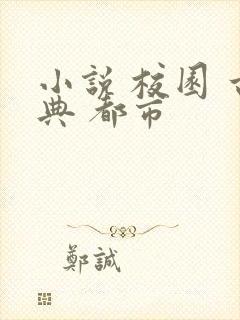 小說 校園 古
典 都市
鄭誠